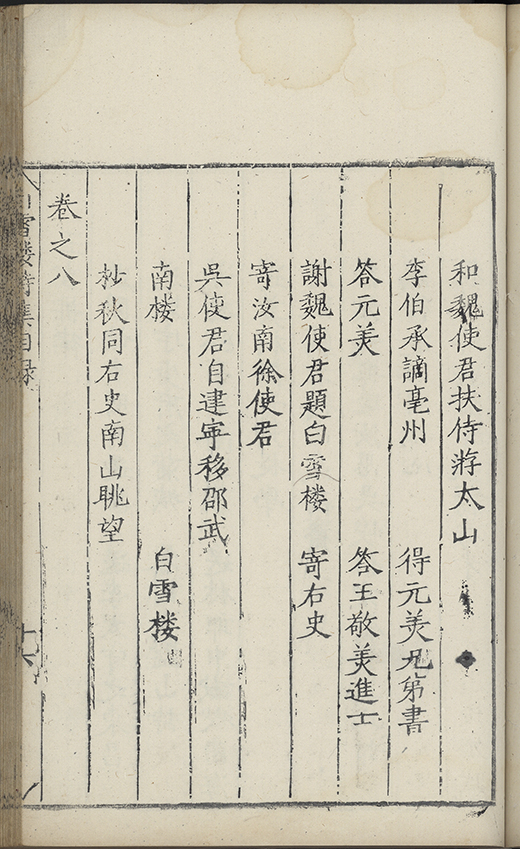 和魏使君扶侍游太山
李伯承謫亳州　得元美兄弟書
答元美　答王敬美進士
謝魏使君題白雪楼　寄右史
寄汝南徐使君
吳使君自建寕移邵武
南楼　白雪楼
杪秋同右史南山眺望
卷之八
白雪楼詩集目録　十六